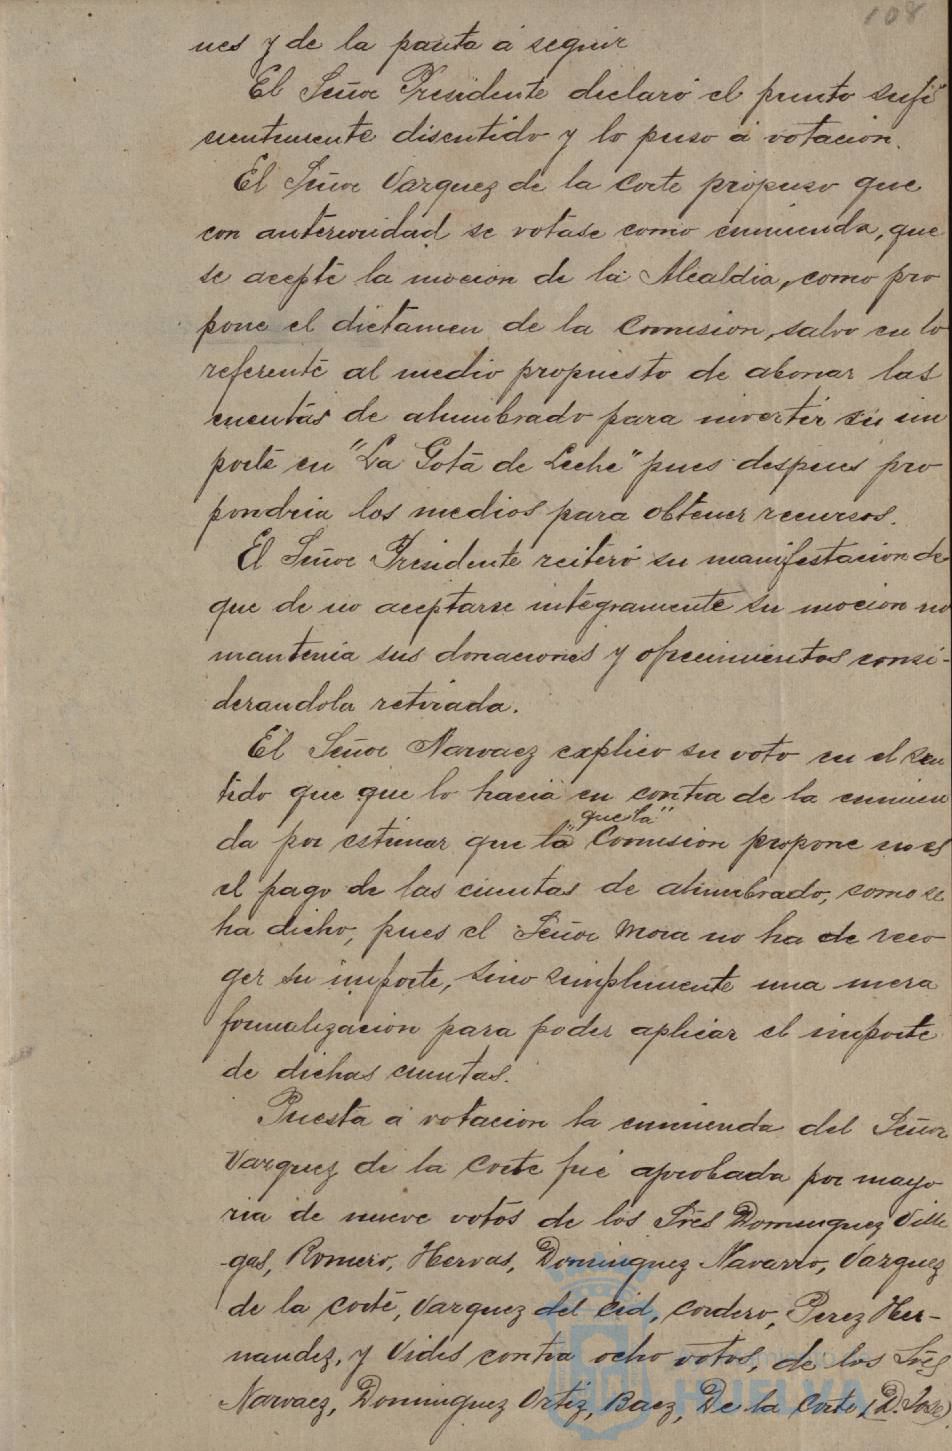 108
nes y de la pauta á seguir
El Señor Presidente declaró el punto sufi
cientemente discutido y lo puso á votacion.
El Señor Vazquez de la Corte propuso que
con anterioridad se votase como enmienda, que
se acepte la mocion de la Alcaldia, como pro
pone el dictamen de la Comision, salvo en lo
referente al medio propuesto de abonar las
cuentas de alumbrado para invertir su im
porte en "La Gota de Leche" pues despues pro
pondria los medios para obtener recursos.
El Señor Presidente reiteró su manifestacion de
que de no aceptarse integramente su mocion no
mantenia sus donaciones y ofrecimientos consi-
derandola retirada.
El Señor Narvaez explico su voto en el sen
tido que que lo hacia en contra de la enmien
"que la"
da por estimar que "la Comision propone no es
el pago de las cuentas de alumbrado, como se
ha dicho, pues el Señor Mora no ha de reco
ger su importe, sino simplemente una mera
formalizacion para poder aplicar el importe
de dichas cuentas.
Puesta á votacion la enmienda del Señor
Vazquez de la Corte fué aprobada por mayo
ria de nueve votos de los Sres Dominguez Ville
gas, Romero, Hervas, Dominguez Navarro, Vazquez
de la Corte, Vazquez del Cid, Cordero, Perez Her-
nandez, y Vides contra ocho votos, de los Sres
Narvaez, Dominguez Ortiz, Baez, De la Corte (D. José),
HUELVA